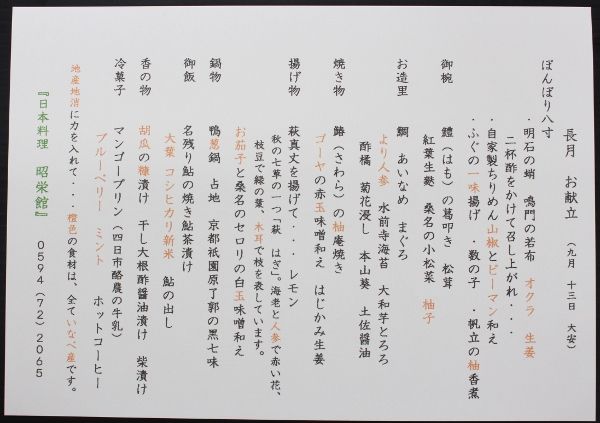 長月　お献立　（九月　十三日　大安）
ぼんぼり八寸
・明石の蛸　鳴門の若布　オクラ　生姜
二杯酢をかけて召し上がれ・・・
・自家製ちりめん山椒とピーマン和え
・ふぐの一味揚げ　・数の子　・帆立の柚香煮
御椀　鱧（はも）の葛叩き　松茸
紅葉生麩　桑名の小松菜　柚子
お造里　鯛　あいなめ　まぐろ
より人参　水前寺海苔　大和芋とろろ
酢橘　菊花浸し　本山葵　土佐醤油
焼き物　鰆（さわら）の柚庵焼き
ゴーヤの赤玉味噌和え　はじかみ生姜
揚げ物　萩真丈を揚げて・・・レモン
秋の七草の一つ「萩　はぎ」。海老と人参で赤い花、
枝豆で緑の葉、木耳で枝を表しています。
お茄子と桑名のセロリの白玉味噌和え
鍋物　鴨葱鍋　占地　京都祇園原了郭の黒七味
御飯　名残り鮎の焼き鮎茶漬け
大葉　コシヒカリ新米　鮎の出し
香の物　胡瓜の糠漬け　干し大根酢醤油漬け　柴漬け
冷菓子　マンゴープリン（四日市酪農の牛乳）
ブルーベリー　ミント　ホットコーヒー
地産地消に力を入れて・・・橙色の食材は、全ていなべ産です。
『日本料理　昭栄館』　0594（72）2065